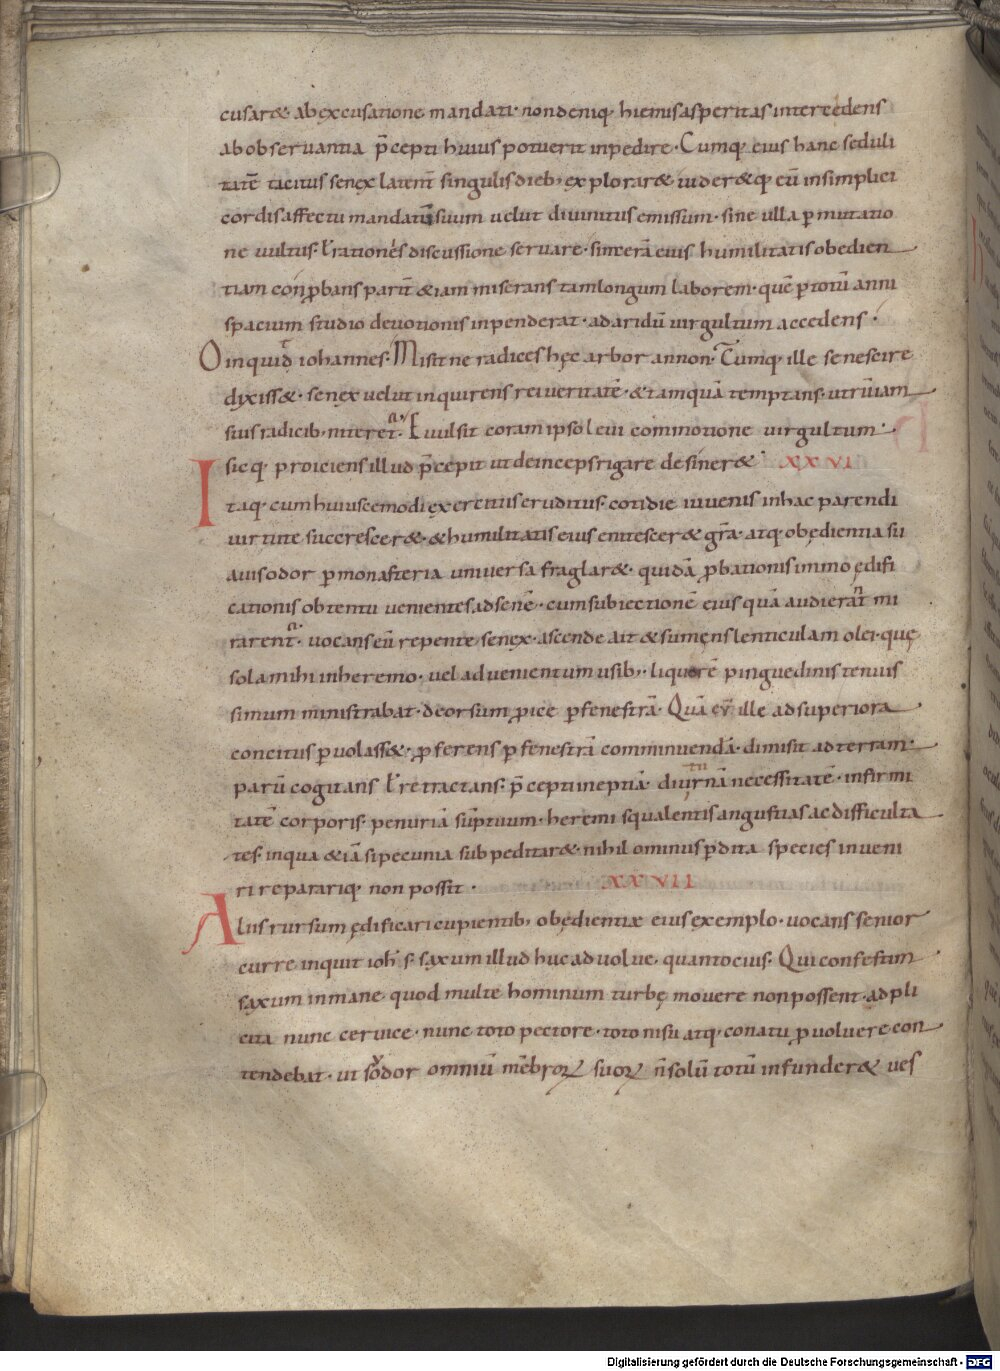 cusar& abexcusatione mandati· non deniq, hiemis asperitas intercedens
ab observantia p̄cepti huius potuerit inpedire· Cumq, eius hanc seduli
tatē tacitus senex latent̄ singulis dieb; explorar& uider&q, eū insimplici
cordis affectu mandatū suum velut divinitus emissum· sine ulla p̱mutatio
ne vultus· ł rationis discussione servare· sincerā eius humilitatis obedien
tiam conp̱bans parit̄ &iam miserans tam longum laborem· quē p̱ totū anni
spacium studio devotionis inpenderat· ad aridū virgultum accedens·
O inquid iohannes· Misitne radices hęc arbor annon· Cumq, ille se nescire
dixiss&· senex velut inquirens rei veritatē· & tamquā temptans· utrū iam
suis radicib; niteret̄· Evulsit coram ipso levi commotione virgultum·
sicq, proiciens illud p̄cepit ut deinceps rigare desiner& XXVI
Itaq, cum huiuscemodi exercitiis eruditus· cotidie iuvenis in hac parendi
virtute succrescer&· & humilitatis eius enitescer& gr̄a· atq, obędientia su
avis odor p̱ monasteria universa fraglar&· quidā p̱bationis immo ędifi
cationis obtentu venientes ad senē· cum subiectionē eius quā audierant̄ mi
rarent̄· vocans eū repente senex· ascende ait & sumens lenticulam olei· quę
sola mihi in heremo· vel advenientum usib; liquorē pinguedinis tenuis
simum ministrabat· deorsum p̱ice p̱ fenestrā· Quā cū ille ad superiora
concitus p̱volass&· p̱ferens p̱ fenestrā comminuendā· dimisit ad terram·
parū cogitans ł retractans· p̄cepti ineptiā· diurnā necessitatē· infirmi
tatē corporis· penuriā sūptuum· heremi squalentis angustias ac difficulta
tes· in qua &iā si pecunia subpeditar&· nihilominus p̱dita species inveni
ri repararīq, non possit· XXVII
Aliis rursum ędificari cupientib; obędientiæ eius exemplo· vocans senior
curre inquit ioh̄s· saxum illud huc advolve, quantocius· Qui confestim
saxum inmane quod multe hominum turbę movere non possent· adpli
cita nunc cervice· nunc toto pectore· toto nisu atq, conatu p̱volvere con
tendebat· ut sudor omniū mēbroꝝ suoꝝ n̄ solū totū infunder& ves
Digitalisierung gefördert durch die Deutsche Forschungsgemeinschaft - DFG